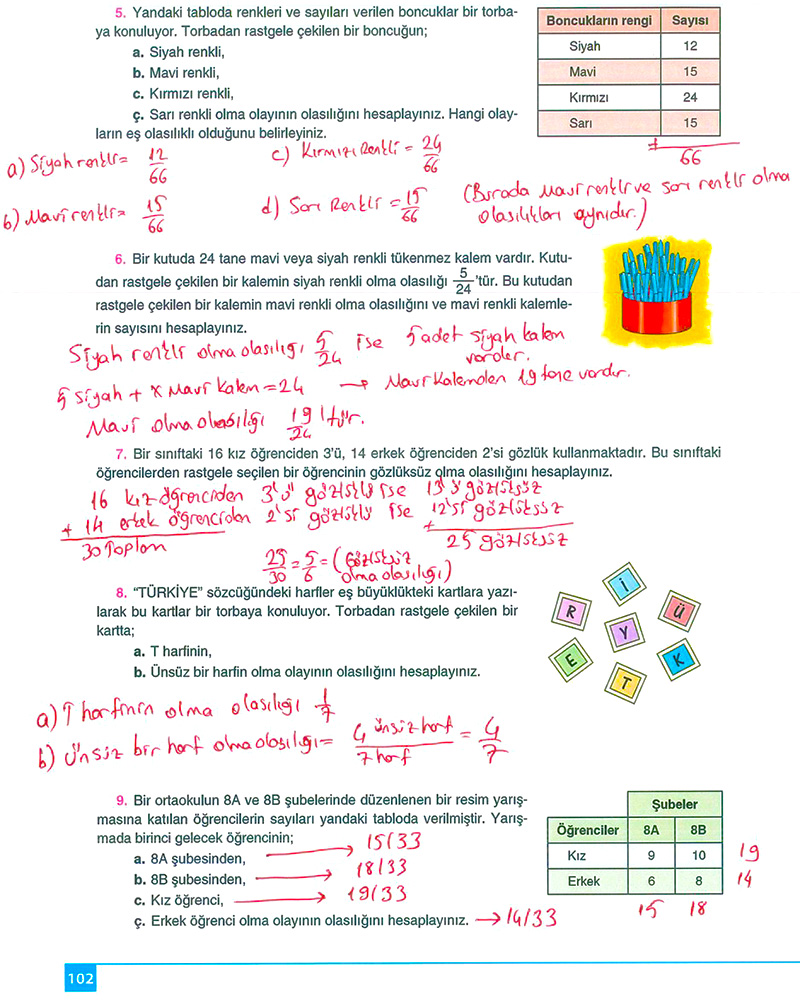 5. Yandaki tabloda renkleri ve sayıları verilen boncuklar bir torba-
ya konuluyor. Torbadan rastgele çekilen bir boncuğun;
a. Siyah renkli,
b. Mavi renkli,
c. Kırmızı renkli,
ç. Sarı renkli olma olayının olasılığını hesaplayınız. Hangi olay-
ların eş olasılıklı olduğunu belirleyiniz.
Boncukların rengi Sayısı
Siyah 12
Mavi 15
Kırmızı 24
Sarı 15
+
66
a) Siyah renkli = 12/66
c) Kırmızı Renkli = 24/66
b) Mavi renkli = 15/66
d) Sarı Renkli = 15/66
(Burada Mavi renkli ve sarı renkli olma
olasılıkları aynıdır.)
6. Bir kutuda 24 tane mavi veya siyah renkli tükenmez kalem vardır. Kutu-
dan rastgele çekilen bir kalemin siyah renkli olma olasılığı 5/24'tür. Bu kutudan
rastgele çekilen bir kalemin mavi renkli olma olasılığını ve mavi renkli kalemle-
rin sayısını hesaplayınız.
Siyah renkli olma olasılığı 5/24 ise 5 adet siyah kalem
vardır.
5 siyah + x Mavi Kalem = 24 → Mavi Kalemden 19 tane vardır.
Mavi olma olasılığı 19/24 'tür.
7. Bir sınıftaki 16 kız öğrenciden 3'ü, 14 erkek öğrenciden 2'si gözlük kullanmaktadır. Bu sınıftaki
öğrencilerden rastgele seçilen bir öğrencinin gözlüksüz olma olasılığını hesaplayınız.
16 kız öğrenciden 3'ü gözlüklü ise 13'ü gözlüksüz
+ 14 erkek öğrenciden 2'si gözlüklü ise 12'si gözlüksüz
+
30 Toplam
25 gözlüksüz
25/30 = 5/6 = (Gözlüksüz
olma olasılığı)
8. “TÜRKİYE” sözcüğündeki harfler eş büyüklükteki kartlara yazı-
larak bu kartlar bir torbaya konuluyor. Torbadan rastgele çekilen bir
kartta;
a. T harfinin,
b. Ünsüz bir harfin olma olayının olasılığını hesaplayınız.
İ
R
Ü
Y
E
K
T
a) T harfinin olma olasılığı 1/7
b) Ünsüz bir harf olma olasılığı = 4 ünsüz harf/7 harf = 4/7
9. Bir ortaokulun 8A ve 8B şubelerinde düzenlenen bir resim yarış-
masına katılan öğrencilerin sayıları yandaki tabloda verilmiştir. Yarış-
mada birinci gelecek öğrencinin;
a. 8A şubesinden, → 15/33
b. 8B şubesinden, → 18/33
c. Kız öğrenci, → 19/33
ç. Erkek öğrenci olma olayının olasılığını hesaplayınız. → 14/33
Şubeler
Öğrenciler 8A 8B
Kız 9 10 19
Erkek 6 8 14
15 18
102